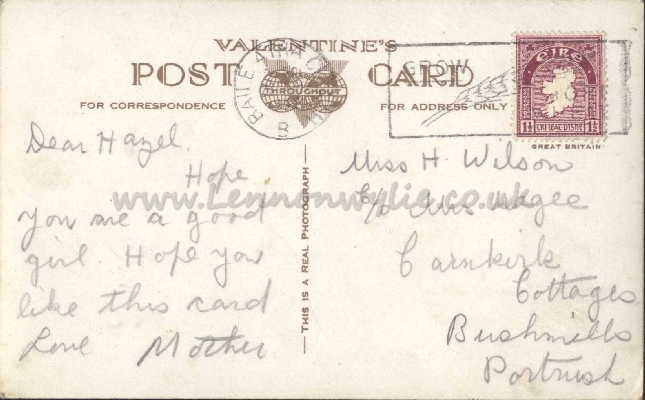 VALENTINE'S
POST CARD
THROUGHOUT
FOR CORRESPONDENCE
FOR ADDRESS ONLY
BAILE ÁTHA C
B
GROW
EIRE
1½ 1½
GREAT BRITAIN
Dear Hazel.
Hope
you are a good
girl. Hope you
like this card
Love Mother
THIS IS A REAL PHOTOGRAPH
Miss H. Wilson
c/o Mrs Magee
Carnkirk
Cottages
Bushmills
Portrush
www.Lennonwylie.co.uk